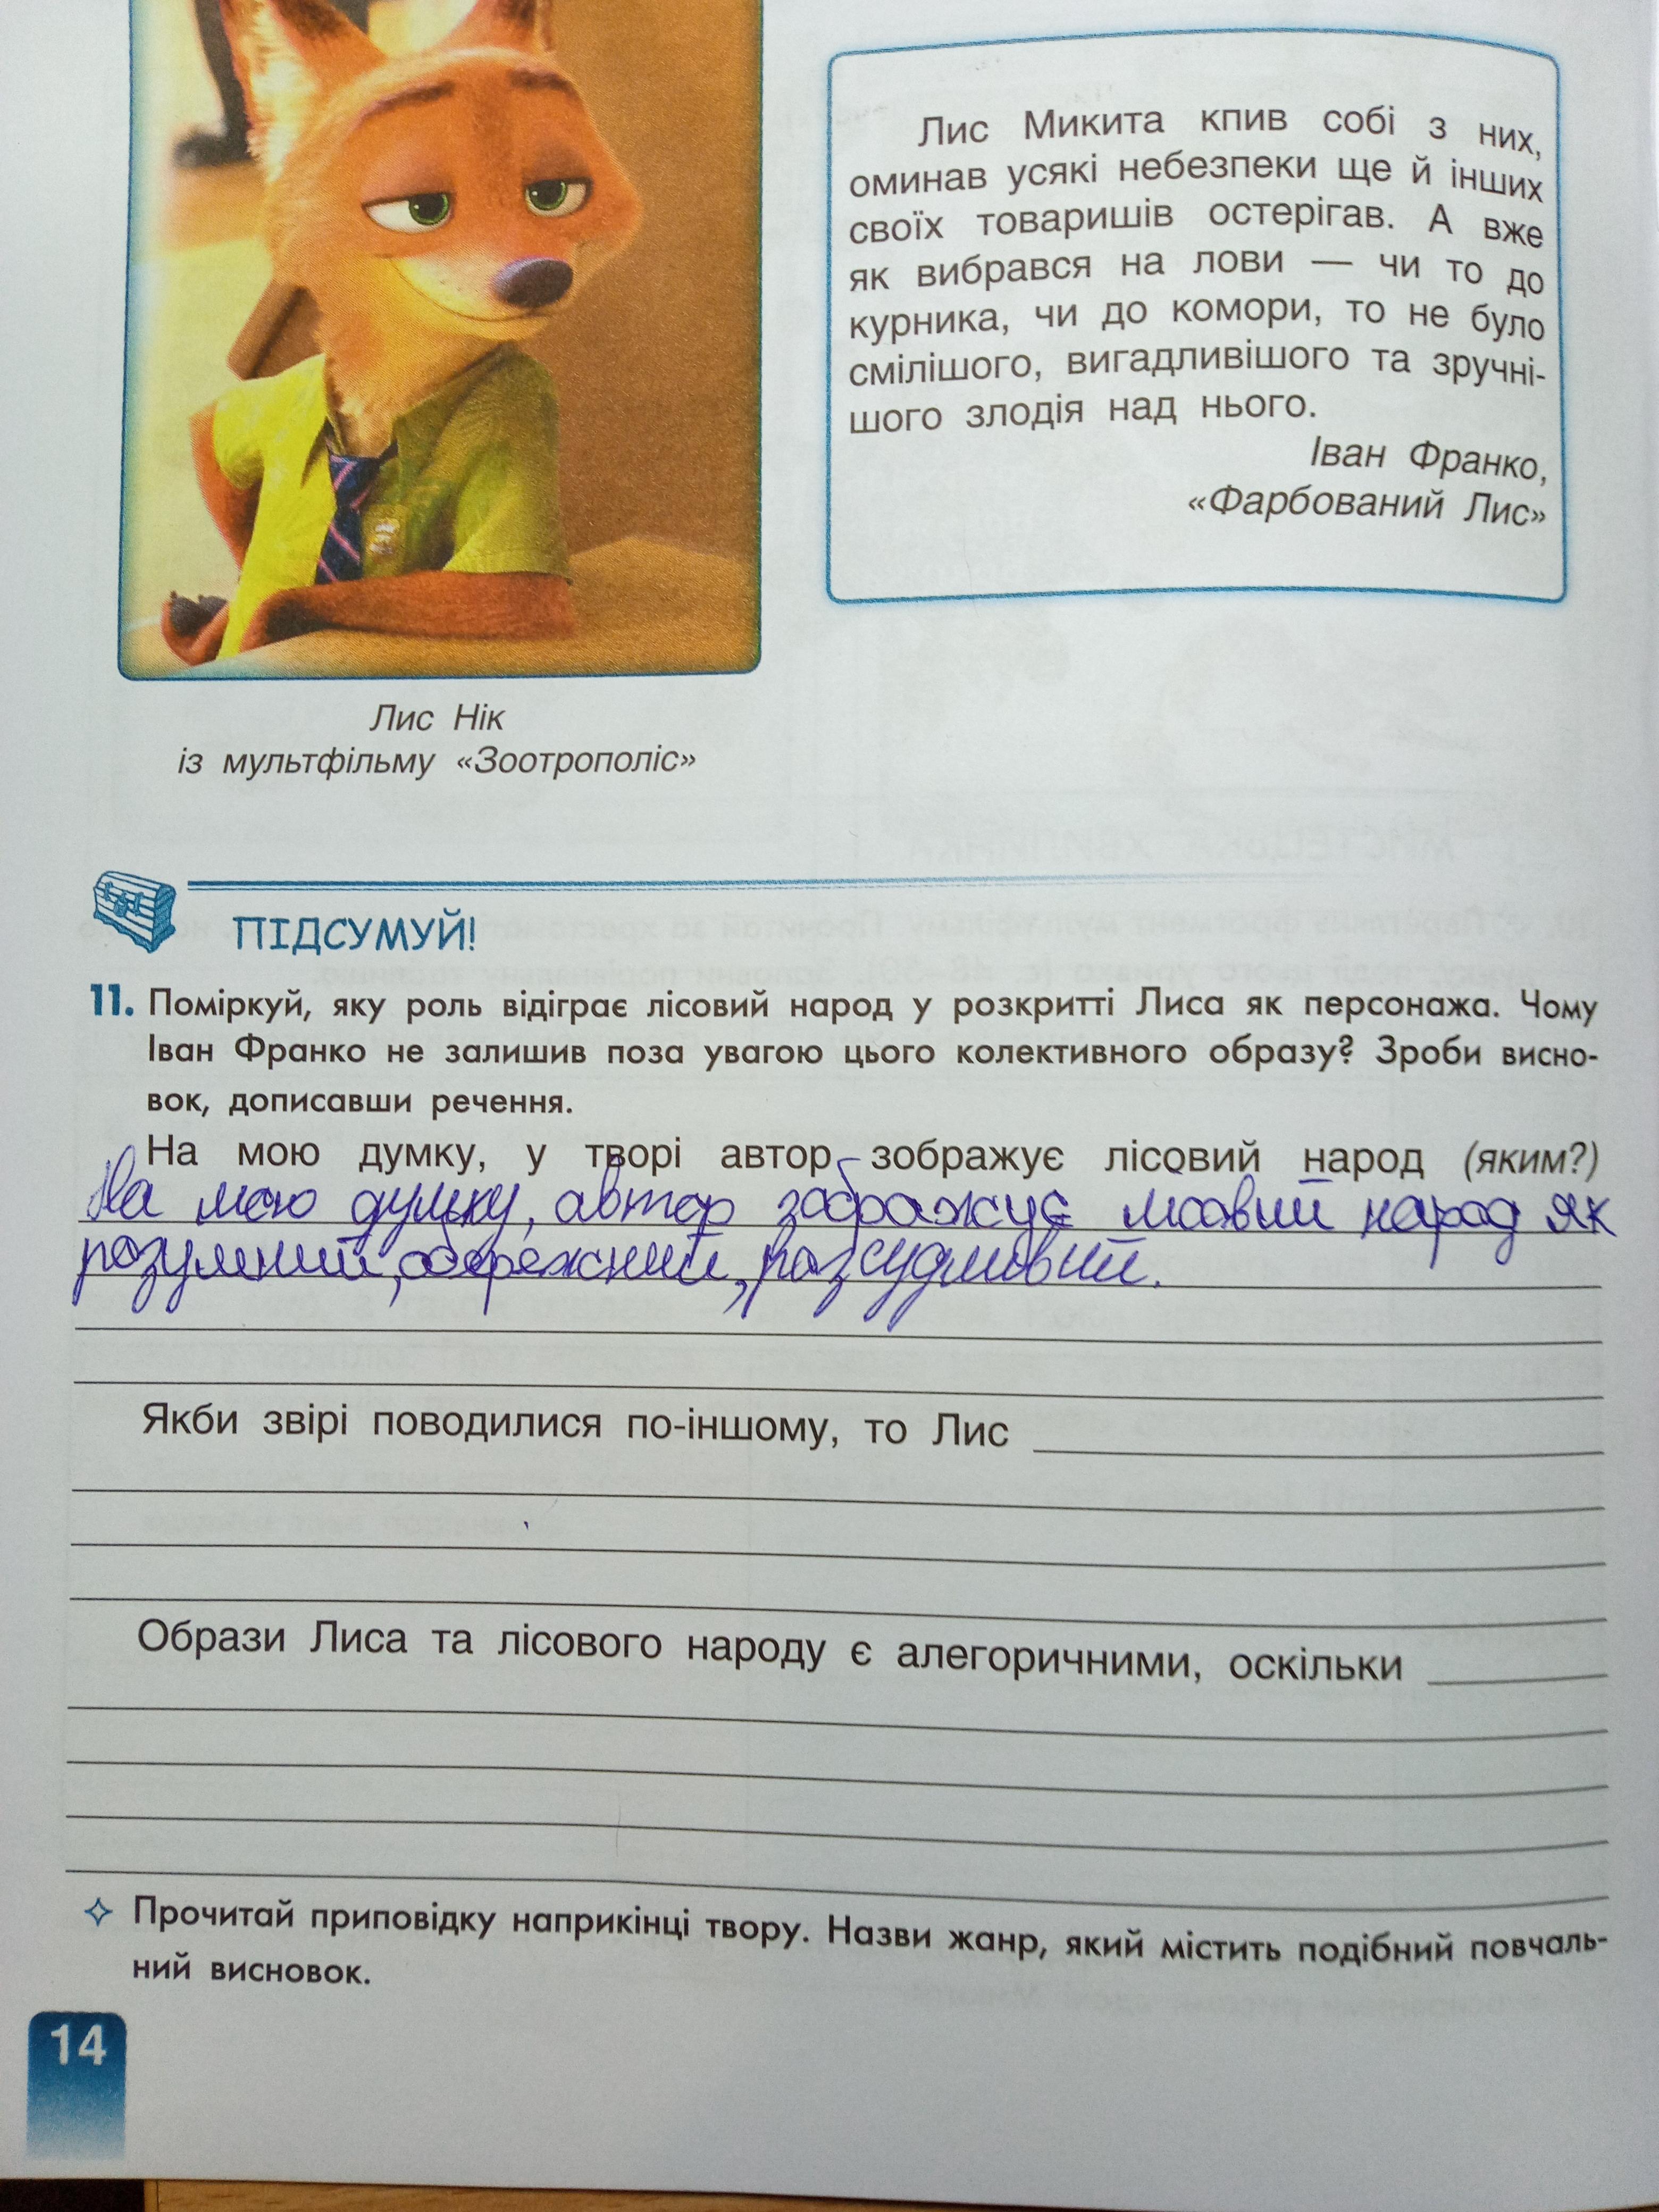 Лис Микита кпив собі з них,
оминав усякі небезпеки ще й інших
своїх товаришів остерігав. А вже
як вибрався на лови — чи то до
курника, чи до комори, то не було
смілішого, вигадливішого та зручні-
шого злодія над нього.
Іван Франко,
«Фарбований Лис»
Лис Нік
із мультфільму «Зоотрополіс»
ПІДСУМУЙ!
11. Поміркуй, яку роль відіграє лісовий народ у розкритті Лиса як персонажа. Чому
Іван Франко не залишив поза увагою цього колективного образу? Зроби висно-
вок, дописавши речення.
На мою думку, у творі автор зображує лісовий народ (яким?)
На мою думку, автор зображує лісовий народ як
розумний, обережний, розсудливий.
Якби звірі поводилися по-іншому, то Лис
Образи Лиса та лісового народу є алегоричними, оскільки
✧ Прочитай приповідку наприкінці твору. Назви жанр, який містить подібний повчаль-
ний висновок.
14